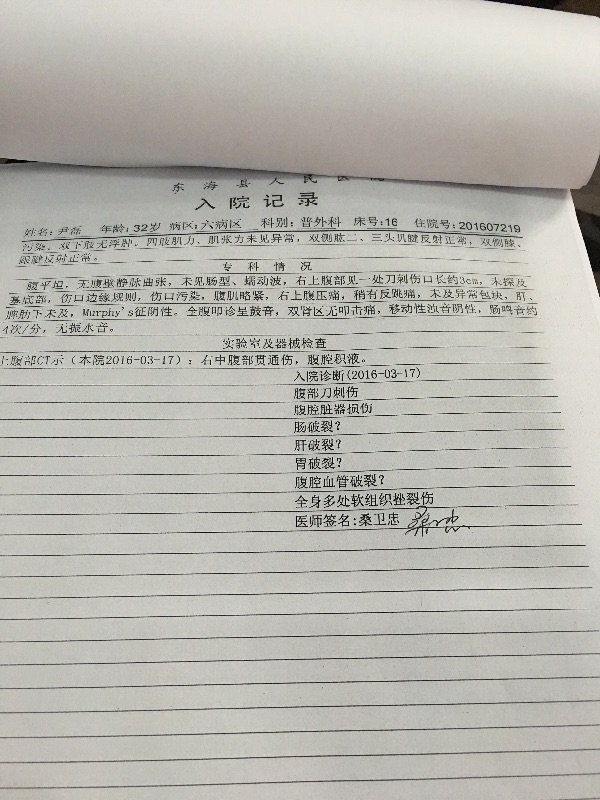 东海县人民医院
入院记录
姓名:尹磊 年龄:32岁 病区:六病区 科别:普外科 床号:16 住院号:201607219
污染。双下肢无浮肿。四肢肌力、肌张力未见异常，双侧肱二、三头肌腱反射正常，双侧膝、
跟腱反射正常。
专科情况
腹平坦，无腹壁静脉曲张，未见肠型、蠕动波，右上腹部见一处刀刺伤口长约3cm，未探及
基底部，伤口边缘规则，伤口污染，腹肌略紧，右上腹压痛，稍有反跳痛，未及异常包块，肝、
脾肋下未及，Murphy's征阴性。全腹叩诊呈鼓音，双肾区无叩击痛，移动性浊音阴性，肠鸣音约
4次/分，无振水音。
实验室及器械检查
上腹部CT示（本院2016-03-17）：右中腹部贯通伤，腹腔积液。
入院诊断(2016-03-17)
腹部刀刺伤
腹腔脏器损伤
肠破裂？
肝破裂？
胃破裂？
腹腔血管破裂？
全身多处软组织挫裂伤
医师签名:桑卫忠